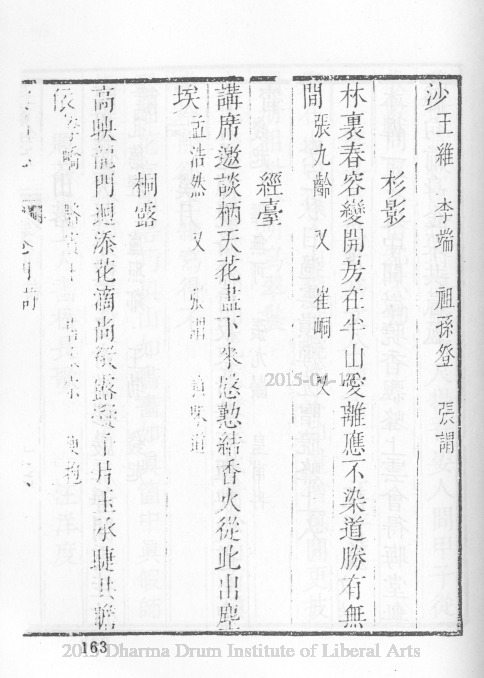 沙 王維 李端 祖孫登 張謂
杉影
林裏春容變開房在半山愛離應不染道勝有無
間 張九齡 又 崔峒 又
經臺
講席邀談柄天花盡下來慇懃結香火從此出塵
埃 孟浩然 又 張謂 味道
桐露
高映龍門迥添花滴尚 露 千片玉承睫共
李嶠
卷四 詩
163
2015-04-1
2015 Dharma Drum Institute of Liberal Arts